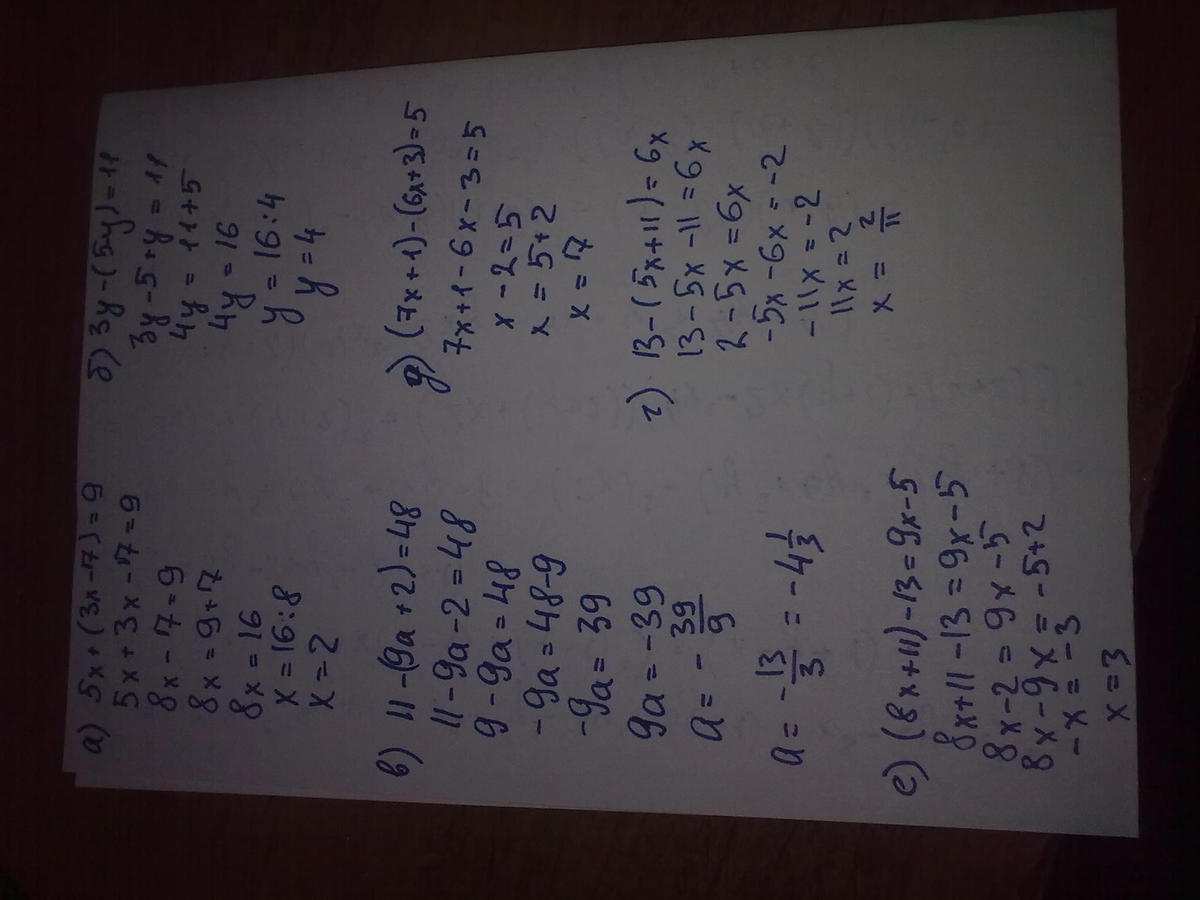 а) 5x + (3x - 7) = 9
5x + 3x - 7 = 9
8x - 7 = 9
8x = 9 + 7
8x = 16
x = 16 : 8
x = 2
б) 3y - (5y) = 11
3y - 5 + y = 11
4y = 11 + 5
4y = 16
y = 16 : 4
y = 4
в) 11 - (9a + 2) = 48
11 - 9a - 2 = 48
9 - 9a = 48
- 9a = 48 - 9
- 9a = 39
9a = - 39
a = - 39/9
a = - 13/3 = - 4 1/3
д) (7x + 1) - (6x + 3) = 5
7x + 1 - 6x - 3 = 5
x - 2 = 5
x = 5 + 2
x = 7
г) 13 - (5x + 11) = 6x
13 - 5x - 11 = 6x
2 - 5x = 6x
- 5x - 6x = - 2
- 11x = - 2
11x = 2
x = 2/11
е) (8x + 11) - 13 = 9x - 5
8x + 11 - 13 = 9x - 5
8x - 2 = 9x - 5
8x - 9x = - 5 + 2
- x = - 3
x = 3